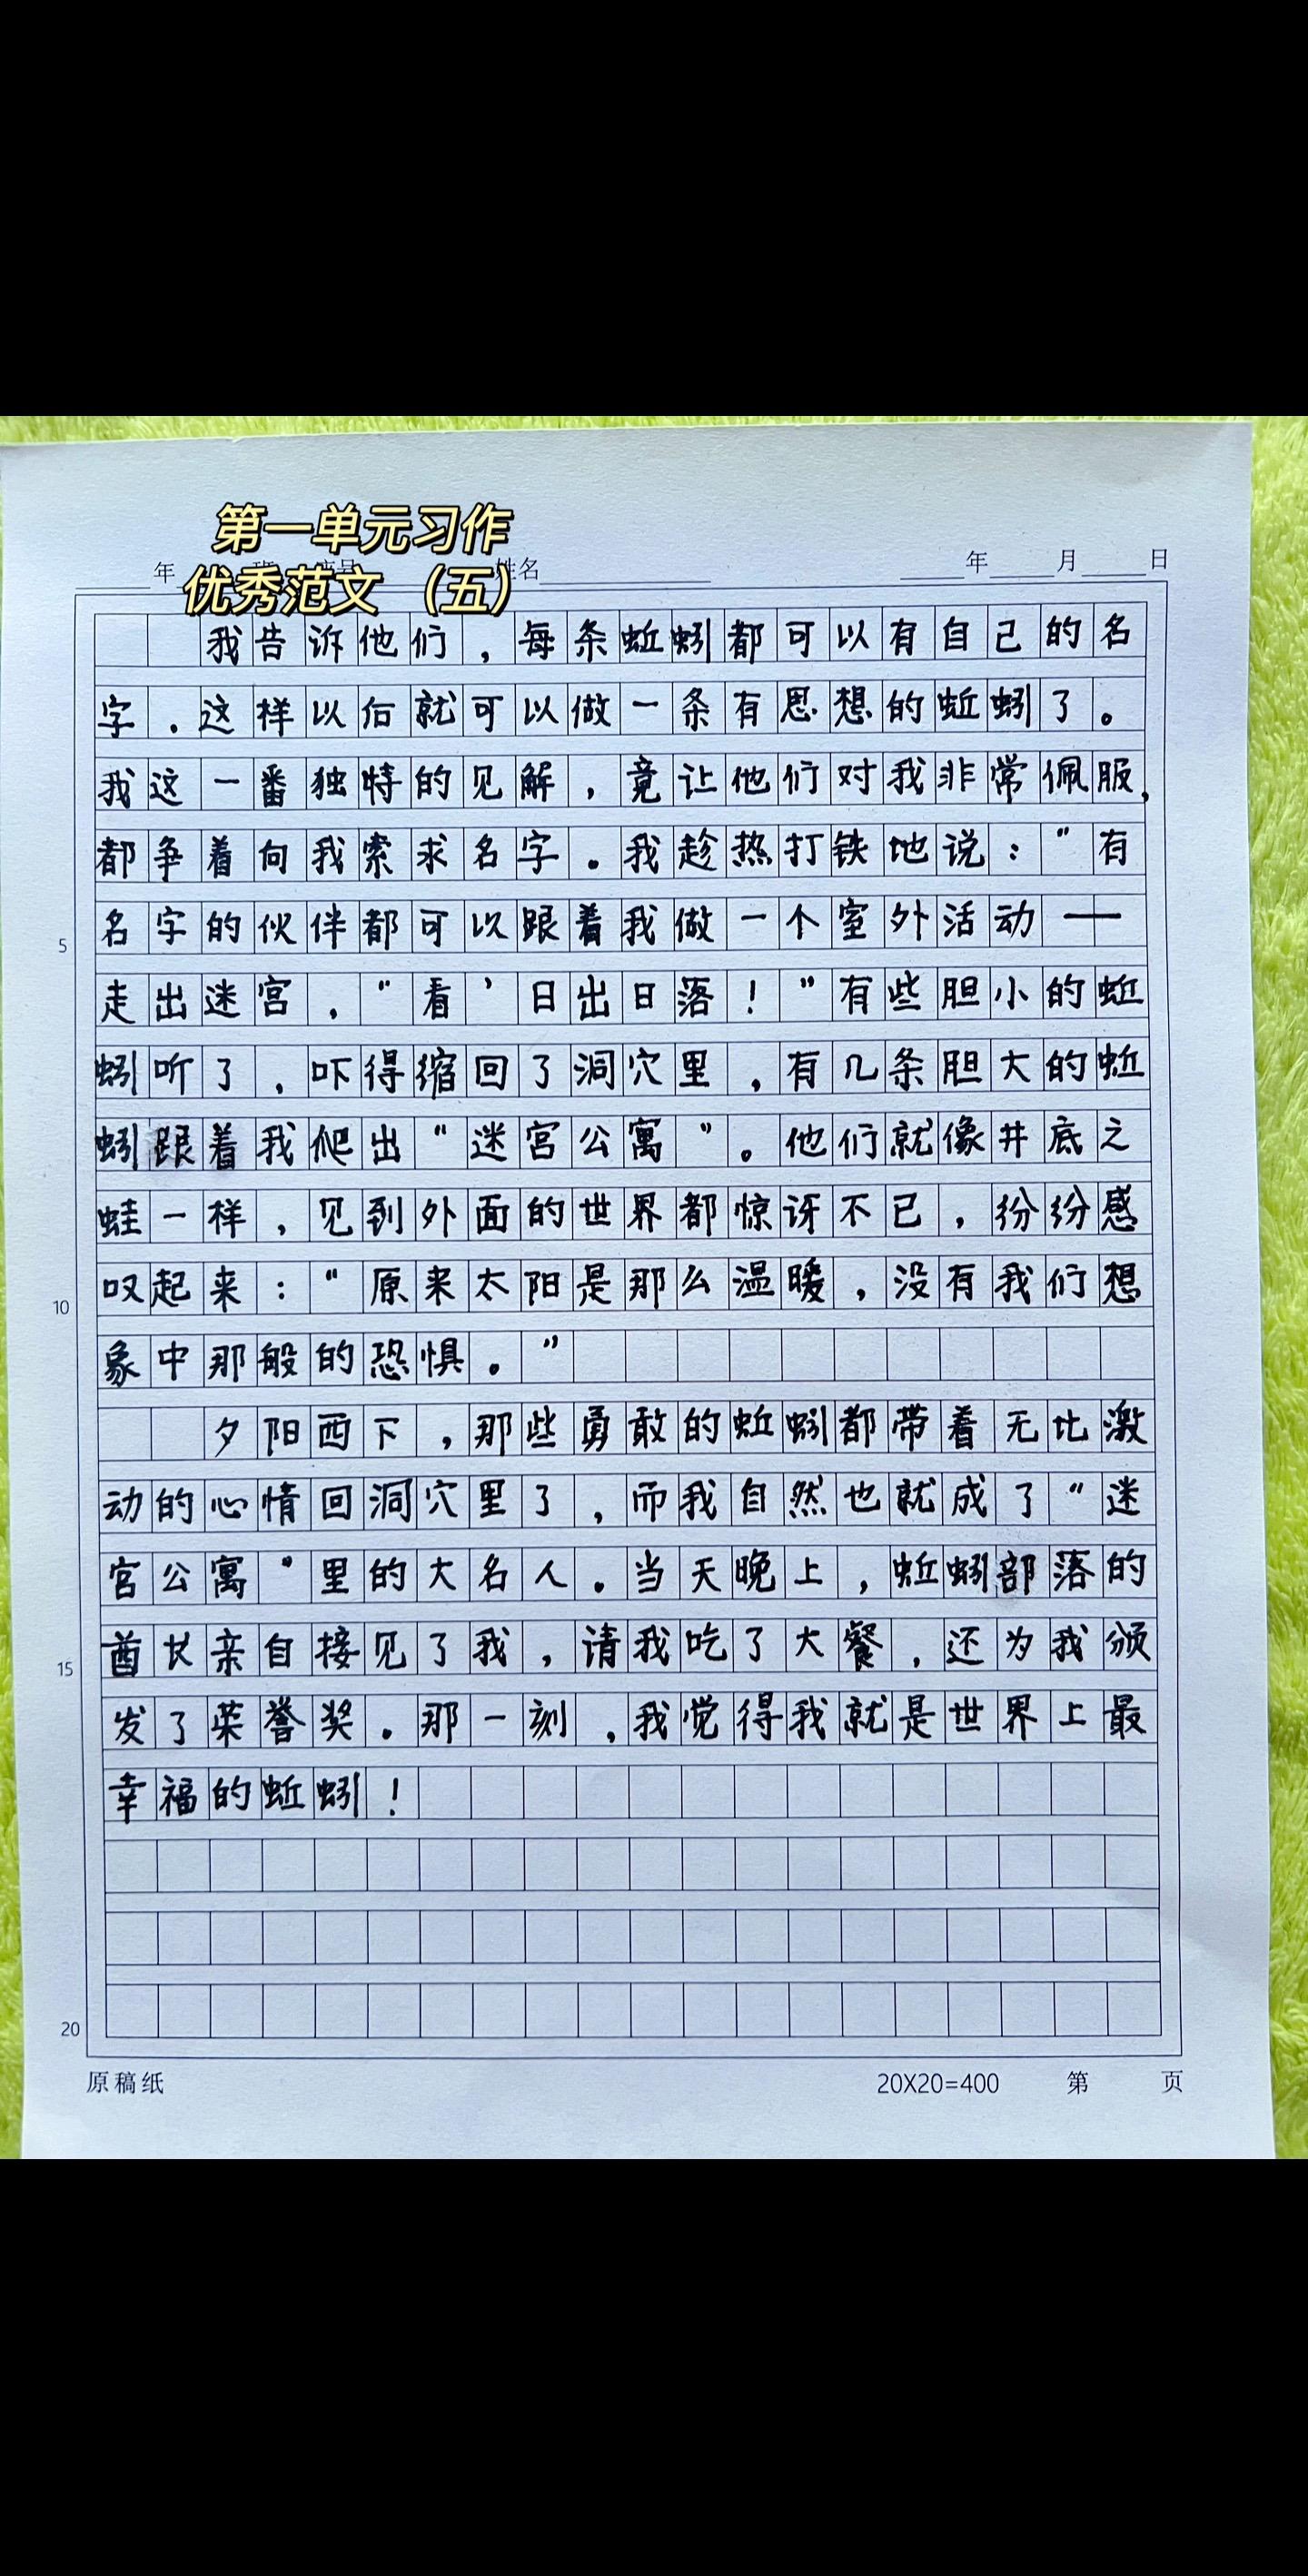 第一单元习作
优秀范文（五）
年 姓名 年 月 日
我告诉他们，每条蚯蚓都可以有自己的名
字．这样以后就可以做一条有思想的蚯蚓了。
我这一番独特的见解，竟让他们对我非常佩服，
都争着向我索求名字。我趁热打铁地说：“有
5 名字的伙伴都可以跟着我做一个室外活动——
走出迷宫，“看’日出日落！”有些胆小的蚯
蚓听了，吓得缩回了洞穴里，有几条胆大的蚯
蚓跟着我爬出“迷宫公寓”。他们就像井底之
蛙一样，见到外面的世界都惊讶不已，纷纷感
10 叹起来：“原来太阳是那么温暖，没有我们想
象中那般的恐惧。”
夕阳西下，那些勇敢的蚯蚓都带着无比激
动的心情回洞穴里了，而我自然也就成了“迷
宫公寓”里的大名人。当天晚上，蚯蚓部落的
15 酋长亲自接见了我，请我吃了大餐，还为我颁
发了荣誉奖。那一刻，我觉得我就是世界上最
幸福的蚯蚓！
20
原稿纸 20X20=400 第 页